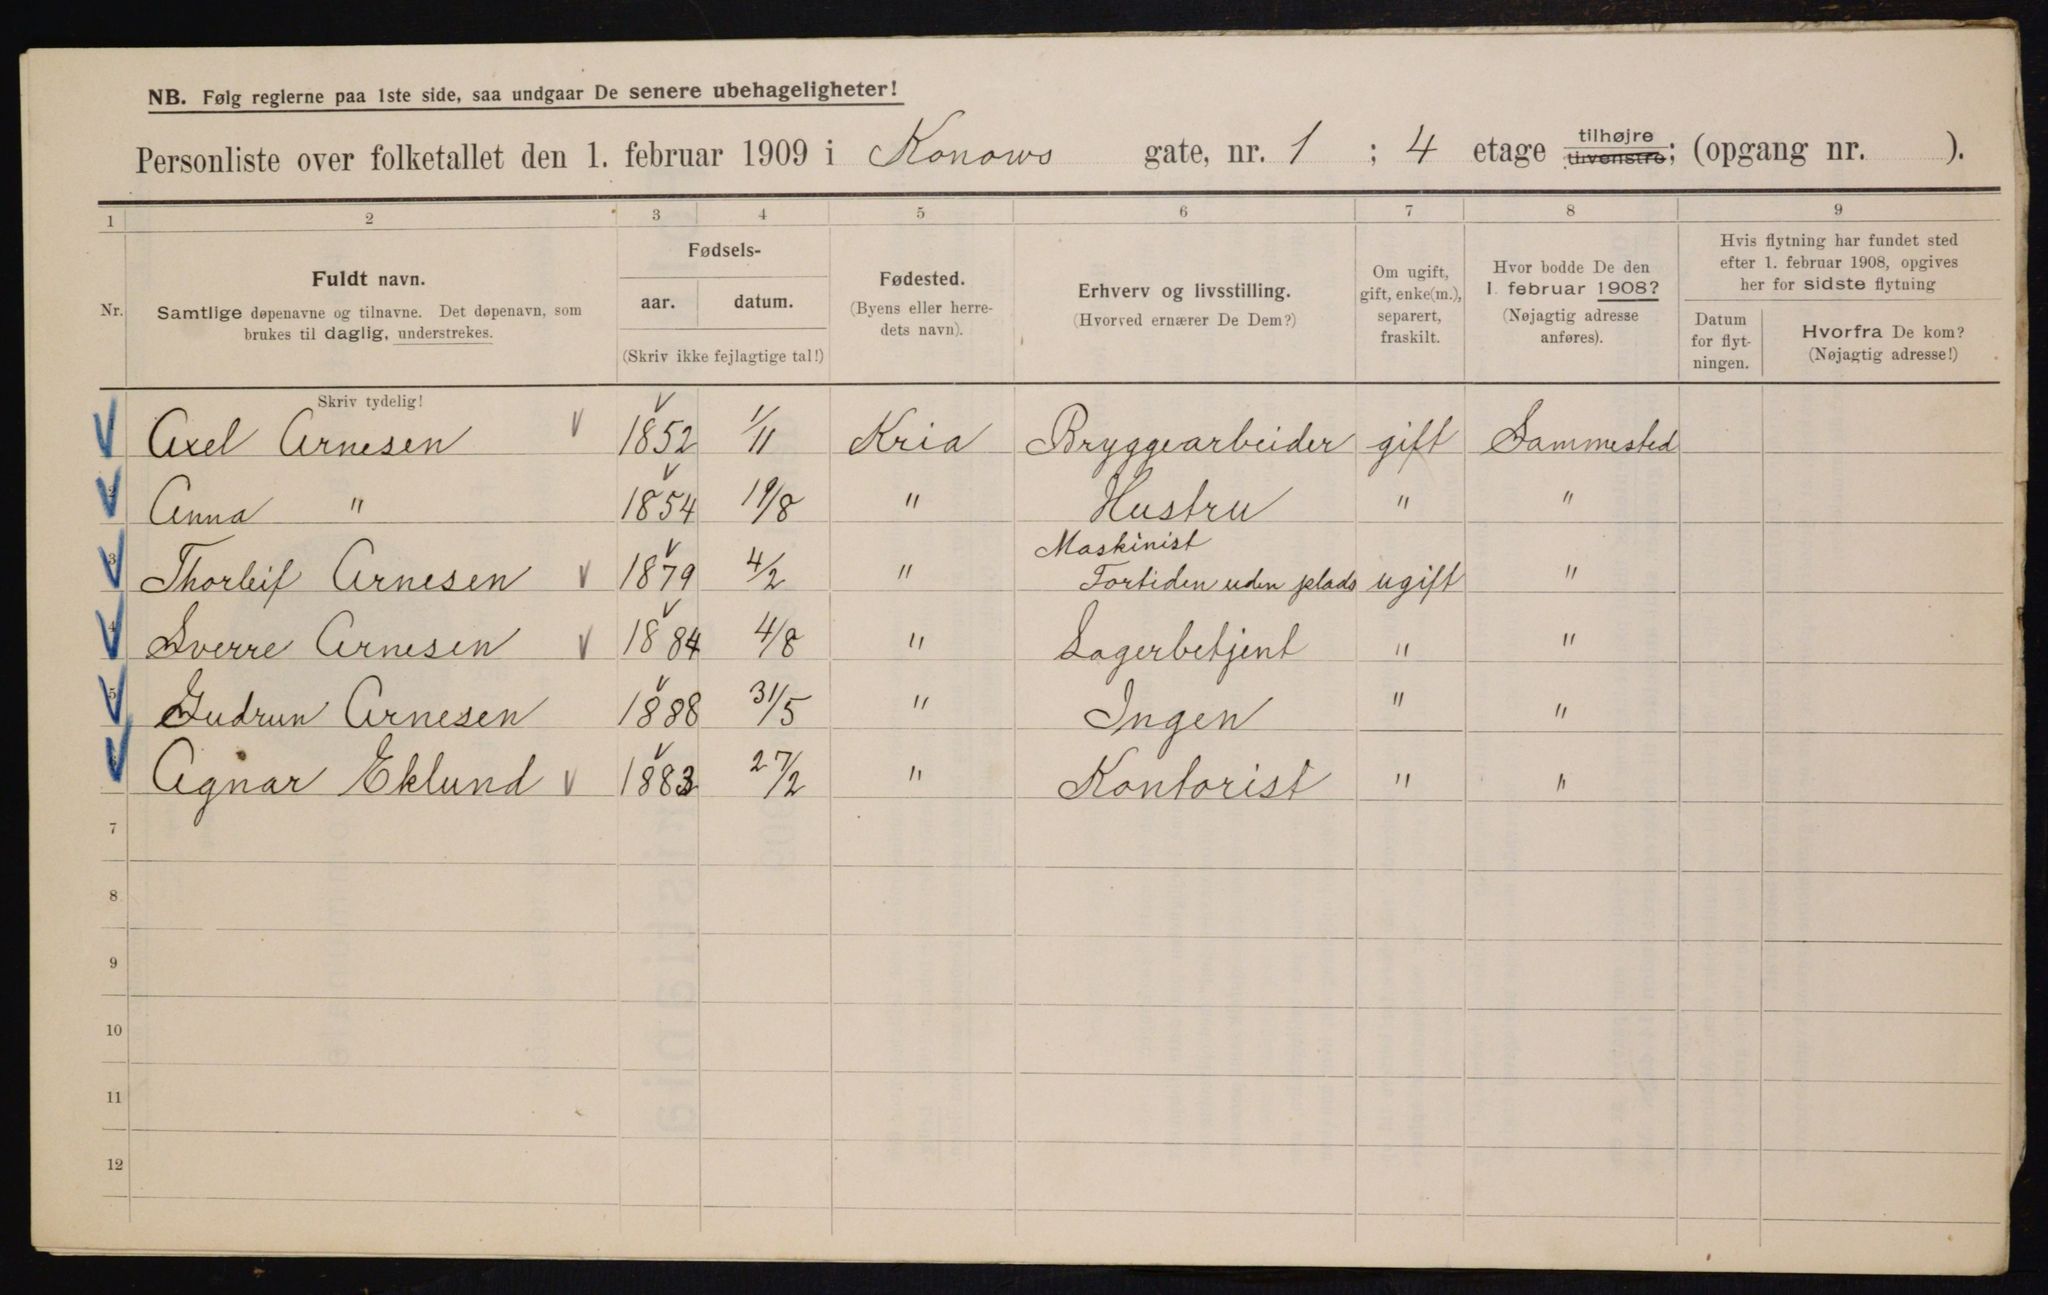 NB. Følg reglerne paa 1ste side, saa undgaar De senere ubehageligheter!
Personliste over folketallet den 1. februar 1909 i Konows gate, nr. 1 ; 4 etage tilhøjre tilvenstre; (opgang nr. ).
1 2 3 4 5 6 7 8 9
Nr.
Fuldt navn.
Samtlige døpenavne og tilnavne. Det døpenavn, som
brukes til daglig, understrekes.
Fødsels-
aar. datum.
(Skriv ikke fejlagtige tal!)
Fødested.
(Byens eller herre-
dets navn).
Erhverv og livsstilling.
(Hvorved ernærer De Dem?)
Om ugift,
gift, enke(m.),
separert,
fraskilt.
Hvor bodde De den
1. februar 1908?
(Nøjagtig adresse
anføres).
Hvis flytning har fundet sted
efter 1. februar 1908, opgives
her for sidste flytning
Datum
for flyt-
ningen.
Hvorfra De kom?
(Nøjagtig adresse!)
Skriv tydelig!
Axel Arnesen 1852 1/11 Kria Bryggearbeider gift Sammested
2 Anna " 1854 19/8 " Hustru " "
3 Thorleif Arnesen 1879 4/2 " Maskinist
Fortiden uden plads ugift "
4 Sverre Arnesen 1884 4/8 " Lagerbetjent " "
5 Gudrun Arnesen 1888 31/5 " Ingen " "
6 Agnar Eklund 1883 27/2 " Kontorist " "
7
8
9
10
11
12